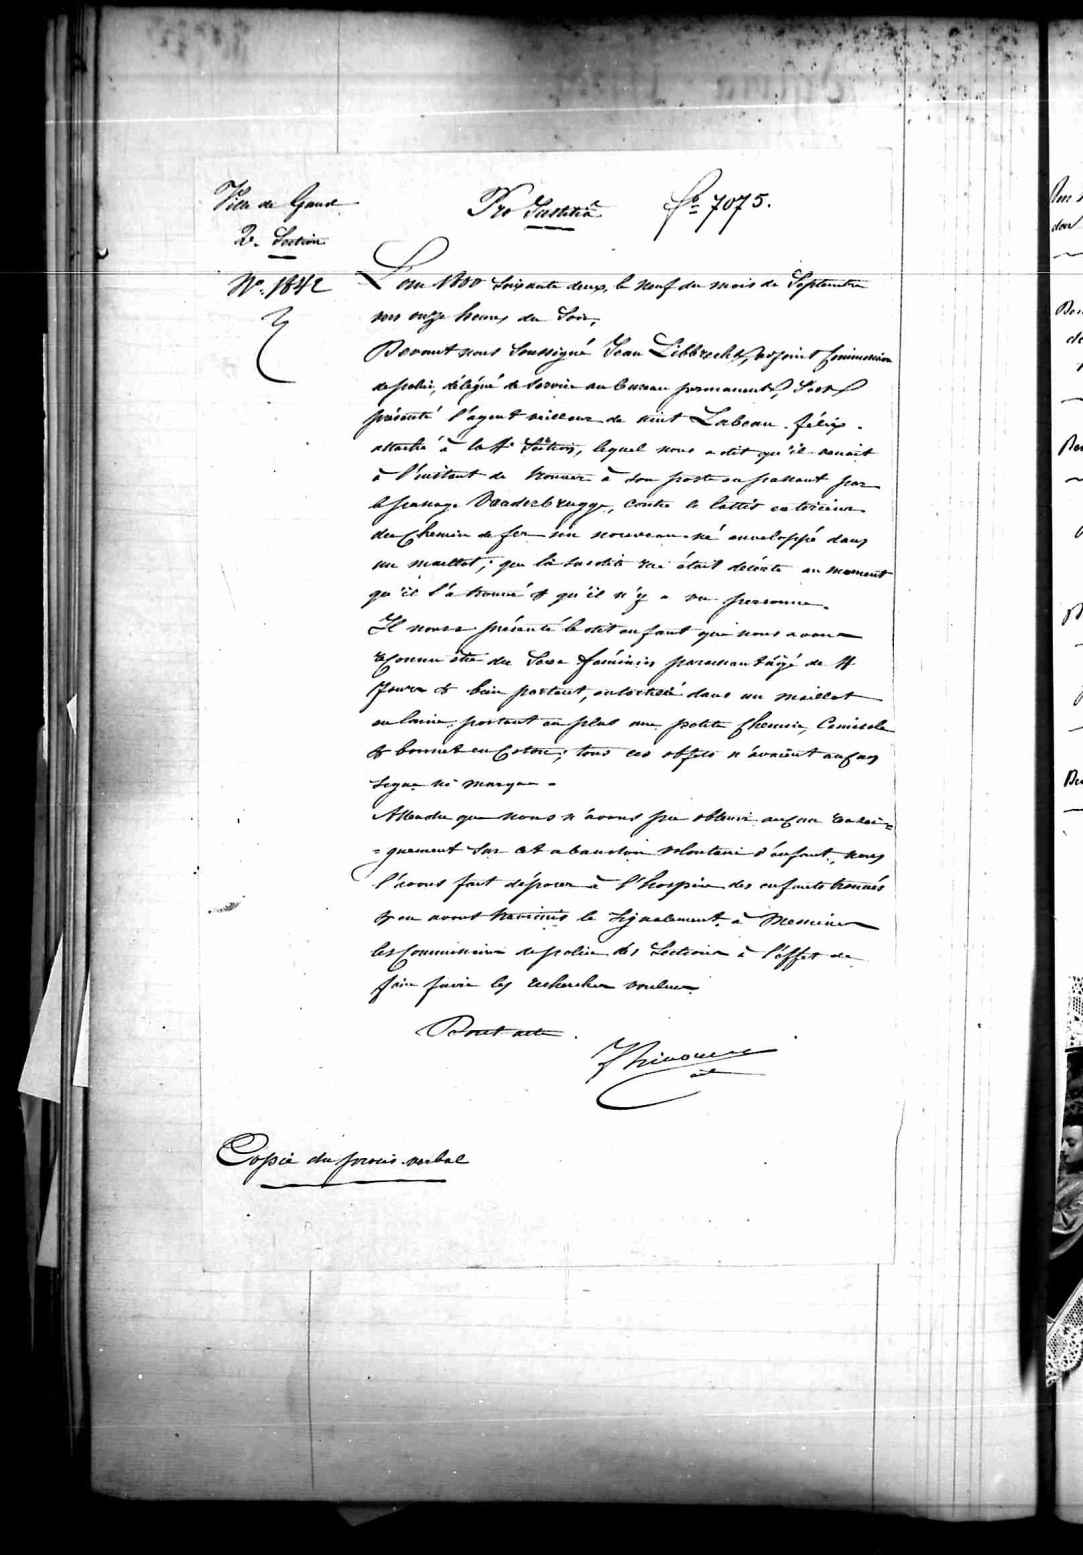 Ville de Gand
2e Section
N°. 1842
Pro Justitia
f° 7075.
L'an 1800 Soixante deux, le Neuf du mois de Septembre
vers onze heures du Soir,
Devant nous Soussigné Jean Libbrecht, adjoint Commissaire
de police, délégué de Service au bureau permanent, s'est
présenté l'agent veilleur de nuit Labeau félix.
attaché à la 4e Section, lequel nous a dit qu'il venait
à l'instant de trouver à son poste en passant par
le passage Vanderbrugge, contre le lattis extérieur
du Chemin de fer un nouveau-né enveloppé dans
un maillot; que la susdite rue était déserte au moment
qu'il l'a trouvé & qu'il n'y a vu personne.
Il nous a présenté le dit enfant que nous avons
reconnu être du Sexe féminin paraissant âgé de 4
Jours & bien portant, entortillé dans un maillot
en laine, portant en plus une petite Chemise, Camisole
& bonnet en Coton; tous ces objets n'avaient aucun
signe ni marque.
Attendu que nous n'avons pu obtenir aucun rensei=
=gnement Sur cet abandon volontaire d'enfant, nous
l'avons fait déposer à l'hospice des enfants trouvés
& en avons transmis le Signalement à Messieurs
les Commissaires de police des Sections à l'effet de
faire faire les recherches voulues
Dont acte.
Copie du procès-verbal